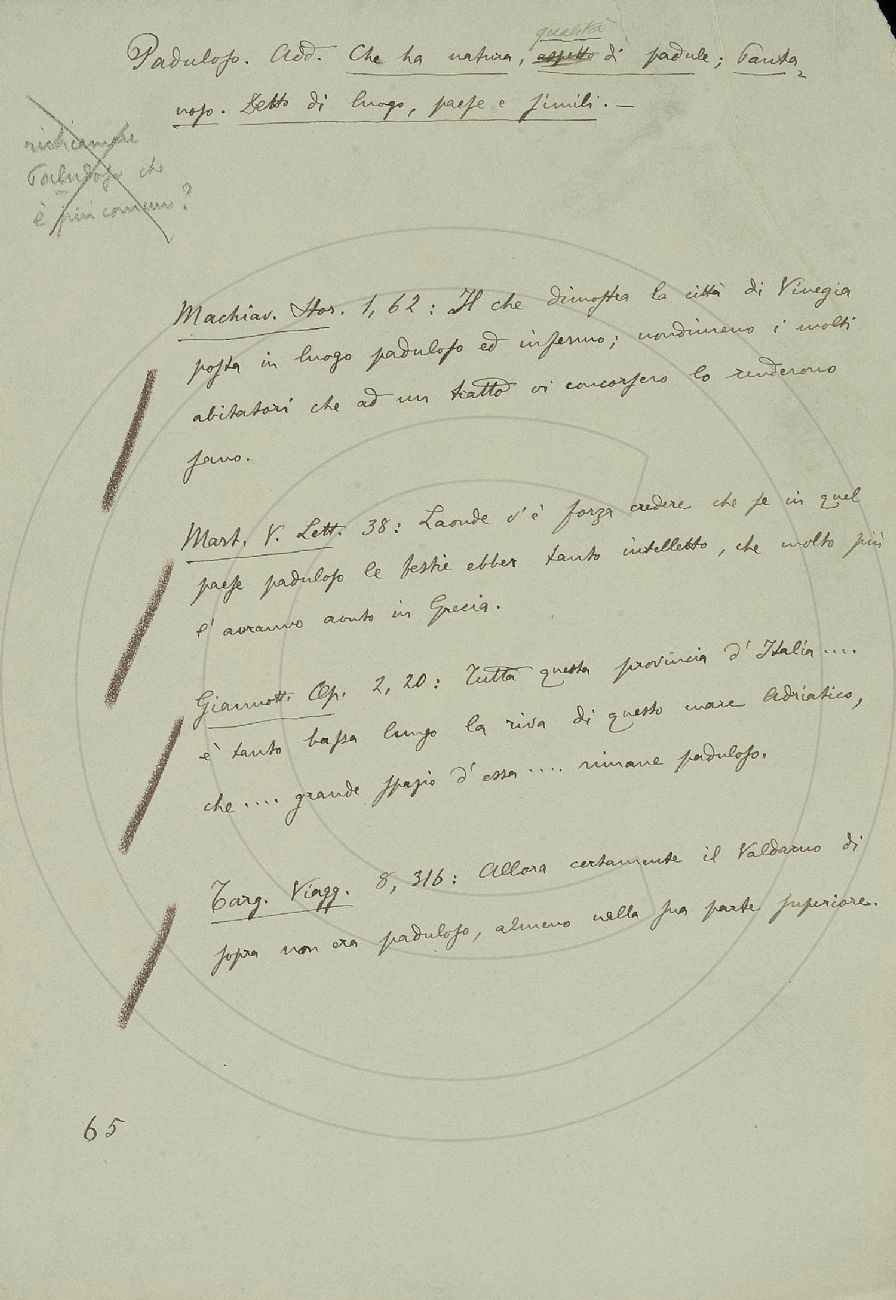 qualità
Paduloso. Add. Che ha natura, aspetto di padule; Panta-
noso. Detto di luogo, paese e simili. —
richiamare
Paludoso che
è più comune?
Machiav. Stor. 1, 62: Il che dimostra la città di Vinegia
posta in luogo paduloso ed infermo; nondimeno i molti
abitatori che ad un tratto vi concorsero lo renderono
sano.
Mart. V. Lett. 38: Laonde v'è forza credere che se in quel
paese paduloso le bestie ebber tanto intelletto, che molto più
l'avranno avuto in Grecia.
Giannott. Op. 2, 20: Tutta questa provincia d'Italia ....
è tanto bassa lungo la riva di questo mare Adriatico,
che .... grande spazio d'essa .... rimane paduloso.
Targ. Viagg. 8, 316: Allora certamente il Valdarno di
sopra non era paduloso, almeno nella sua parte superiore.
65